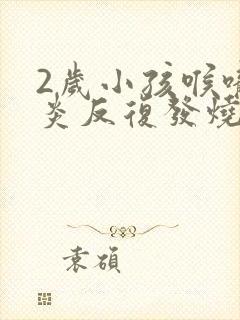 2歲小孩喉嚨
炎反復發燒
袁碩